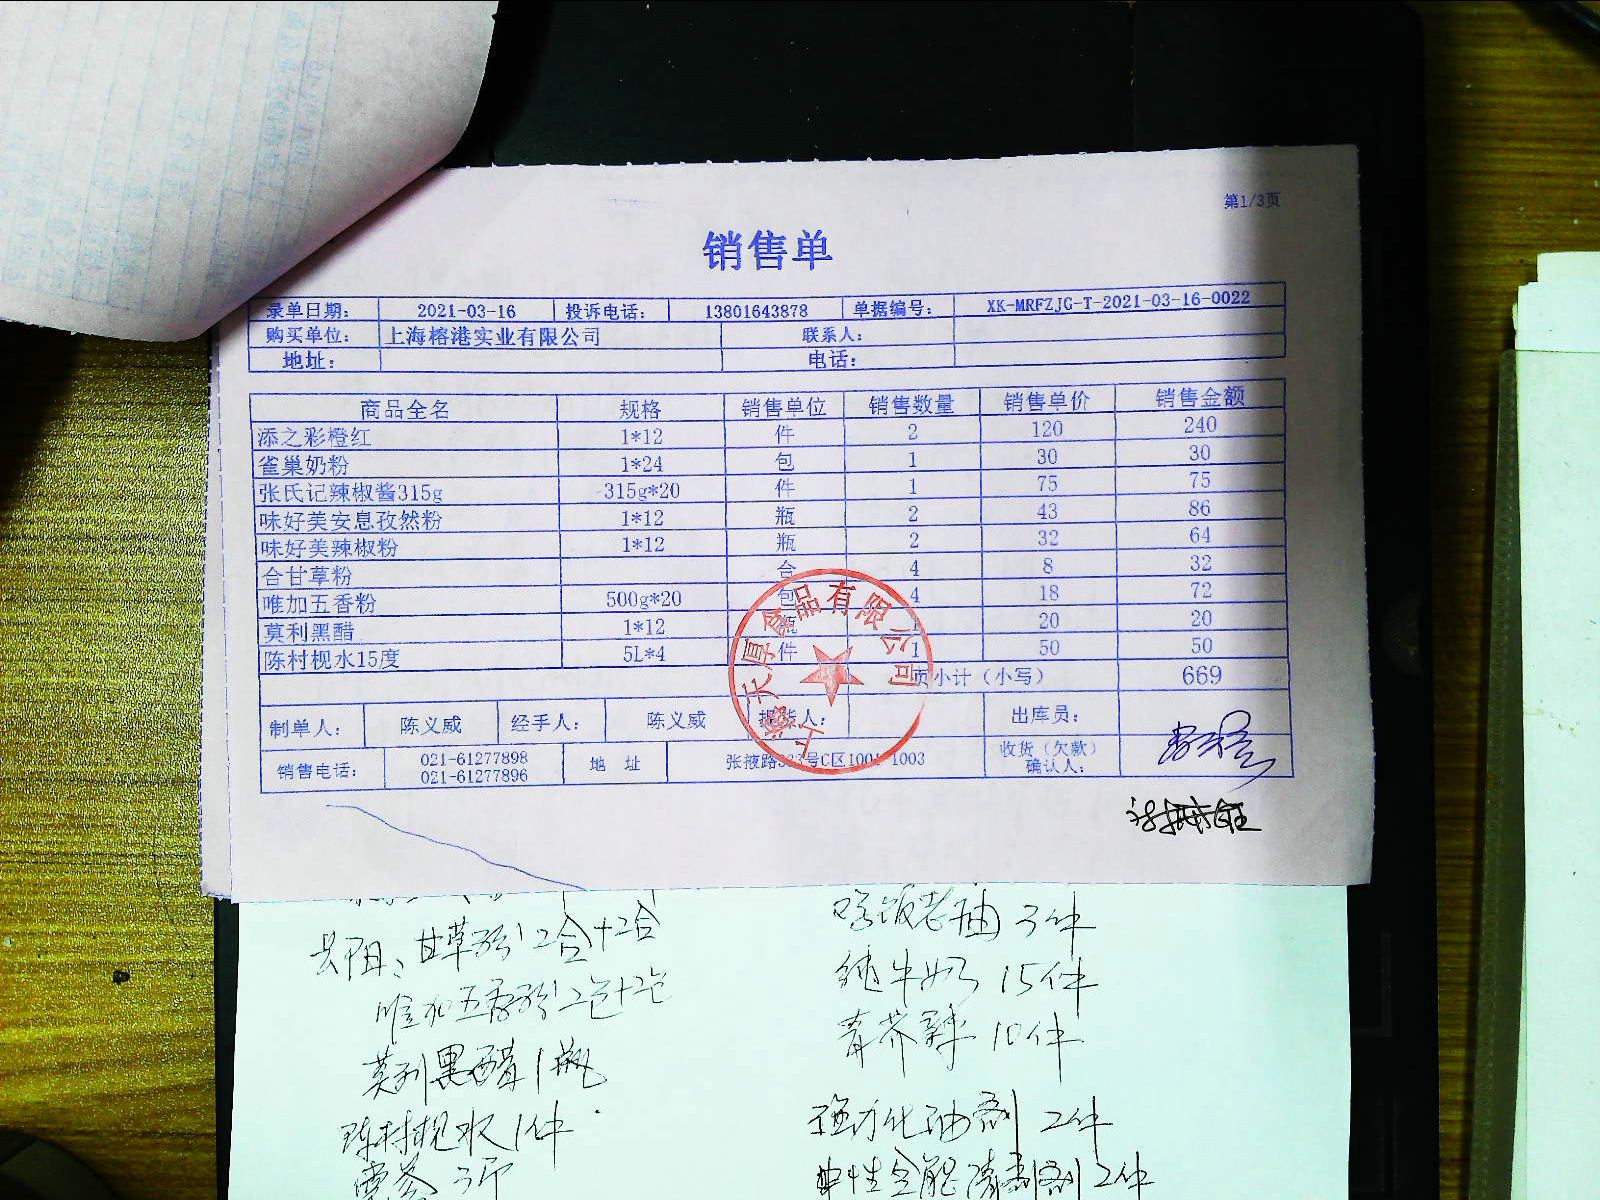 第1/3页
销售单
录单日期: 2021-03-16 投诉电话: 13801643878 单据编号: XK-MRFZJG-T-2021-03-16-0022
购买单位: 上海榕港实业有限公司 联系人:
地址: 电话:
商品全名 规格 销售单位 销售数量 销售单价 销售金额
添之彩橙红 1*12 件 2 120 240
雀巢奶粉 1*24 包 1 30 30
张氏记辣椒酱315g 315g*20 件 1 75 75
味好美安息孜然粉 1*12 瓶 2 43 86
味好美辣椒粉 1*12 瓶 2 32 64
合甘草粉 合 4 8 32
唯加五香粉 500g*20 包 4 18 72
莫利黑醋 1*12 瓶 20 20
陈村枧水15度 5L*4 件 1 50 50
页小计（小写） 669
制单人: 陈义威 经手人: 陈义威 提货人: 出库员:
销售电话: 021-61277898 021-61277896 地 址 张掖路333号C区1001-1003 收货（欠款）确认人:
上海天厚食品有限公司
甘草粉2合+2合
唯加五香粉2包+2包
莫利黑醋1瓶
陈村枧水1件
老抽3件
纯牛奶15件
青芥辣10件
强力化油剂2件
2件